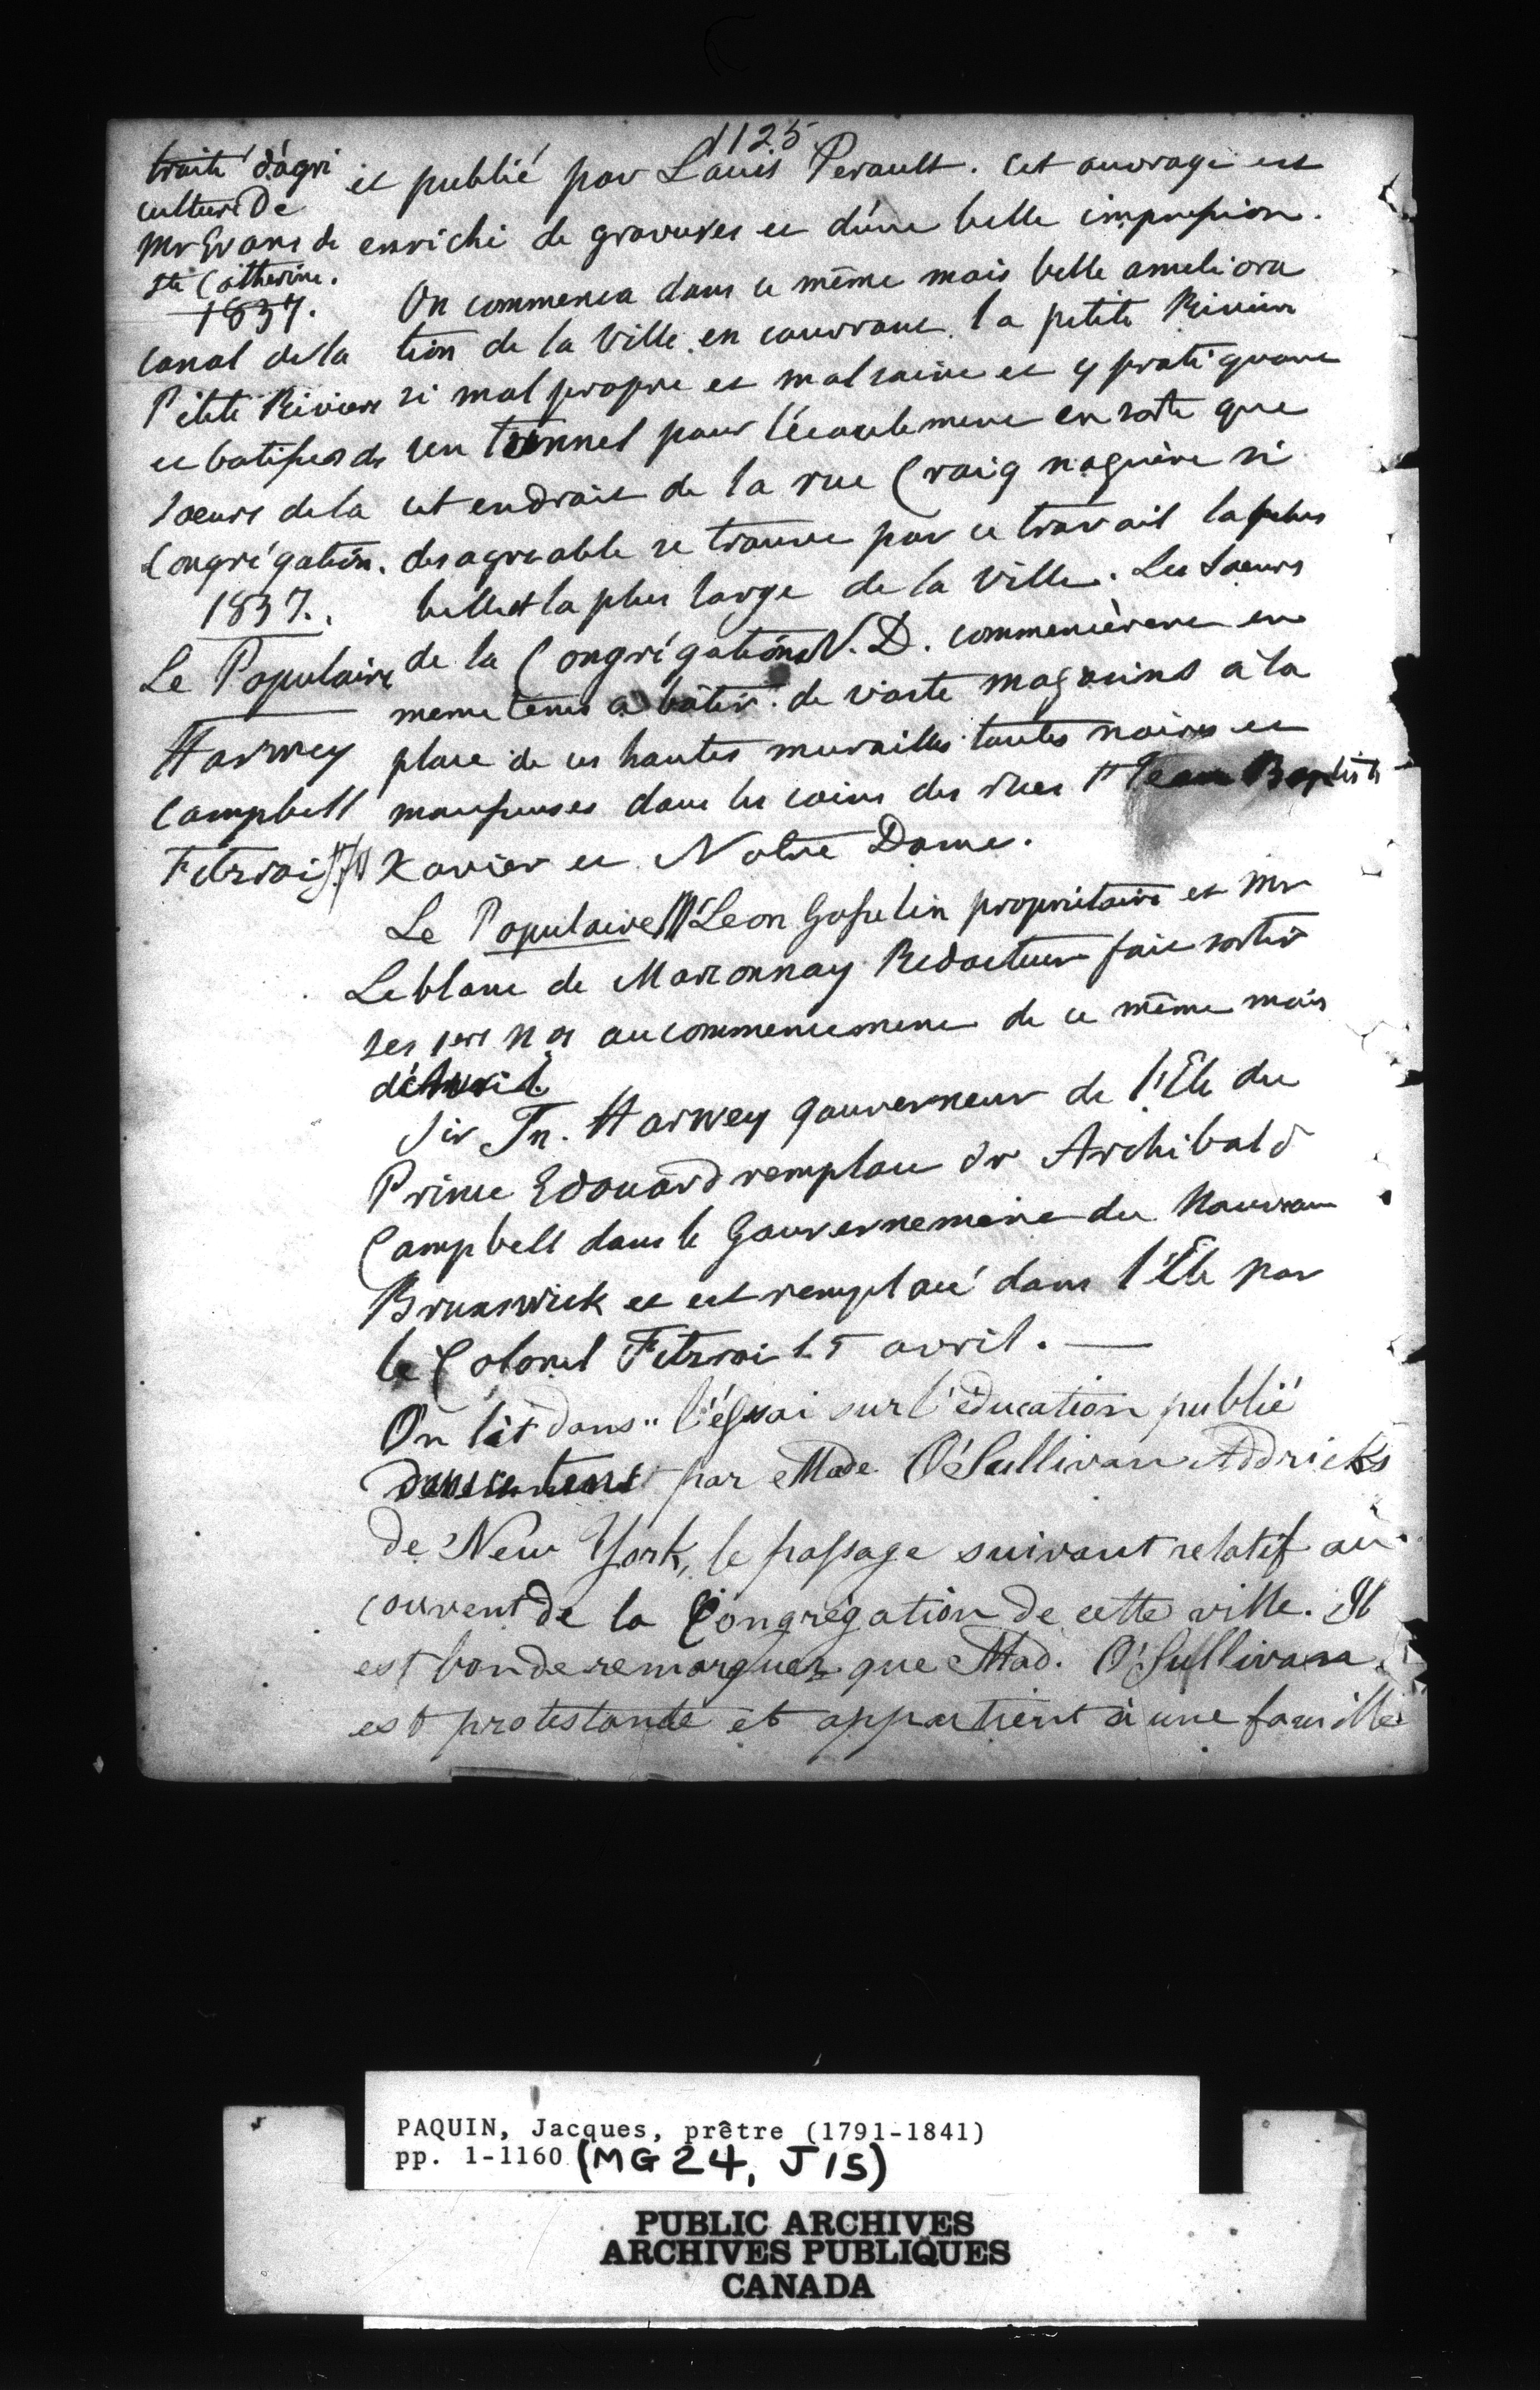 1125
traité d'agri
culture De
Mr Evans de
Ste Catherine.
1837.
Canal de la
Petite Riviere
et batisses des
soeurs de la
Congrégation.
1837.
Le Populaire
Harwey
Campbell
Fitzroi
et publié par Louis Perault. Cet ouvrage est
enrichi de gravures et d'une belle impression.
On commenca dans ce même mois belle ameliora
tion de la Ville en couvrant la petite Riviere
si mal propre et mal saine et y pratiquant
un tonnel pour l'écoulement en sorte que
cet endroit de la rue Craig naguère si
desagreable se trouve par ce travail la plus
belle et la plus large de la Ville. Les Soeurs
de la Congrégation N. D. commencèrent en
meme tems a bâtir de vaste magasins à la
place de ces hautes murailles toutes noires et
mousseuses dans les coins des rues St Jean Baptiste
Xavier et Notre Dame.
Le Populaire Leon Gosselin propriétaire et Mr
Leblanc de Marconnay Redacteur fait sortir
ses 1ers Nos au commencement de ce même mois
d'Avril.
Sir Jn. Harwey gouverneur de l'Ile du
Prince Edouard remplace Sr Archibald
Campbell dans le Gouvernement du Nouveau
Brunswick et est remplacé dans l'Ile par
le Colonel Fitzroi 15 avril. —
On lit dans " l'éssai sur l'éducation publié
dans ce tems par Made. O'Sullivan Addricks
de New York, le passage suivant relatif au
couvent de la Congrégation de cette ville. Il
est bon de remarquer que Mad. O'Sullivan
est protestante et appartient à une famille
PAQUIN, Jacques, prêtre (1791-1841)
pp. 1-1160 (MG 24, J 15)
PUBLIC ARCHIVES
ARCHIVES PUBLIQUES
CANADA